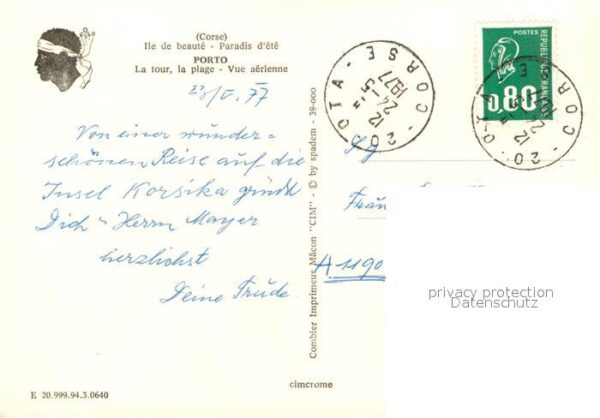 (Corse)
Ile de beauté - Paradis d'été
PORTO
La tour, la plage - Vue aérienne
POSTES
REPUBLIQUE FRANÇAISE
0,80
20 OTA - CORSE
12 H
24 -5
1977
20 OTA CORSE
12 H
/V. 77
Von einer wunder=
schönen Reise auf die
Insel Korsika grüßt
Dich u Herrn Mayer
herzlichst
Deine Trude.
A-1190
Combier Imprimeur Mâcon "CIM" - © by spadem - 39-000
privacy protection
Datenschutz
cimcrome
E 20.999.94.3.0640